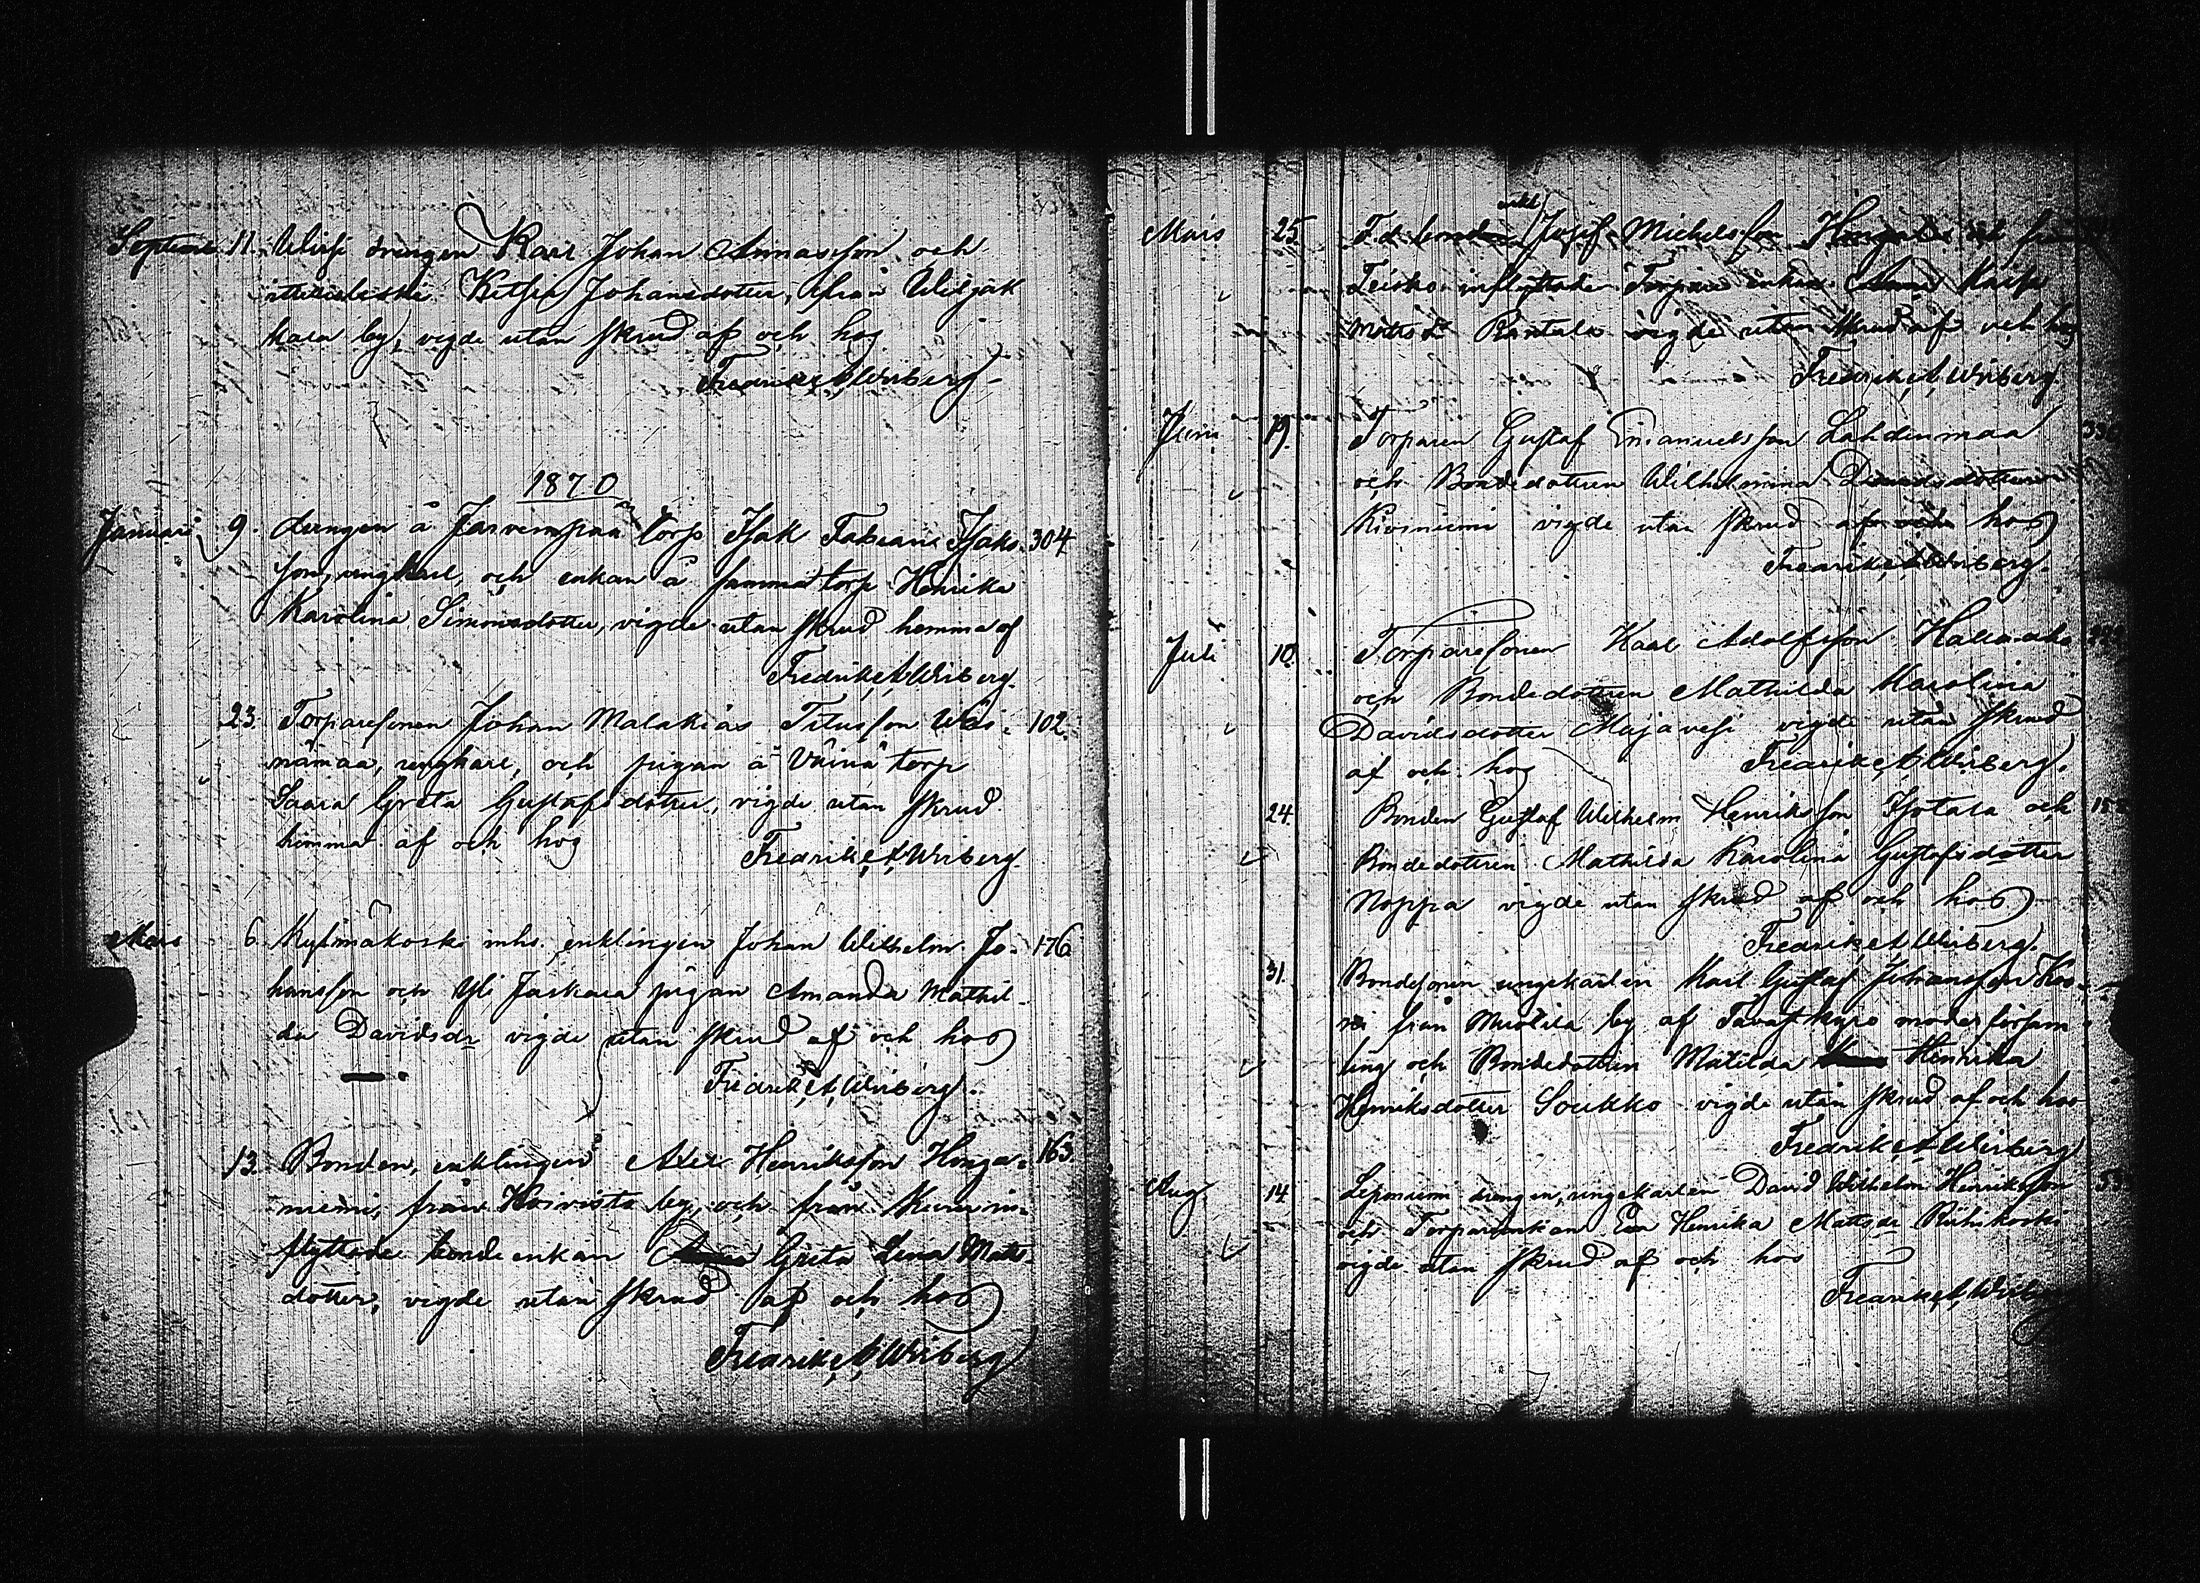 Septemb 11. drengen Karl Johan Annasson och
Johansdotter, från
by, vigde utan skrud af och hos
Fredrik A Wiberg
1870
Januari 9. Drengen å Jarvenpää torp Isak Fabian Isaks- 304
son, ungkarl, och enkan å samma torp Henrika
Karolina Simonsdotter, vigde utan skrud hemma af
Fredrik A Wiberg.
23. Torparesonen Johan Malakias Titusson 102.
nämaa, ungkarl, och pigan å Väinä torp
Saara Greta Gustafsdotter, vigde utan skrud
hemma af och hos Fredrik A Wiberg.
Mars 6. Kyrönkoski inhs. enklingen Johan Wilhelm Jo- 176
hansson och Yli Jaskara pigan Amanda Mathil-
da Davidsdr vigde utan skrud af och hos
Fredrik A Wiberg.
13. Bonden, enklingen Axel Henriksson Honga- 163.
niemi, från Koivisto by, och från in-
flyttade bonde enkan Greta Lena Mats-
dotter, vigde utan skrud af och hos
Fredrik A Wiberg
Mars 25. F.d. Josef Michelsson
Teisko inflyttade Torpare enkan Kaisa
Matsdr Rantala vigde utan skrud af och hos
Fredrik A Wiberg.
Juni 19. Torparen Gustaf Emanuelsson Lahdenmaa
och Bondedottren Wilhelmina Davidsdotter
Kiviniemi vigde utan skrud af och hos
Fredrik A Wiberg.
Juli 10. Torparesonen Karl Adolfsson
och Bondedottren Mathilda Karolina
Davidsdotter Majavesi vigde utan skrud
af och hos Fredrik A Wiberg.
24. Bonden Gustaf Wilhelm Henriksson Isotalo och
Bondedottren Mathilda Karolina Gustafsdotter
Noppa vigde utan skrud af och hos
Fredrik A Wiberg.
31. Bondesonen ungekarlen Karl Gustaf Johansson Kos-
ki från by af Tavastkyro moderförsam
ling och Bondedottren Matilda Henrika
Henriksdotter Soukko vigde utan skrud af och hos
Fredrik A Wiberg
Aug. 14 Leponiemi drengen, ungekarlen David Wilhelm Henriksson
och Torpareenkan Eva Henrika Mattsdr Riihikoski
vigde utan skrud af och hos
Fredrik A Wiberg